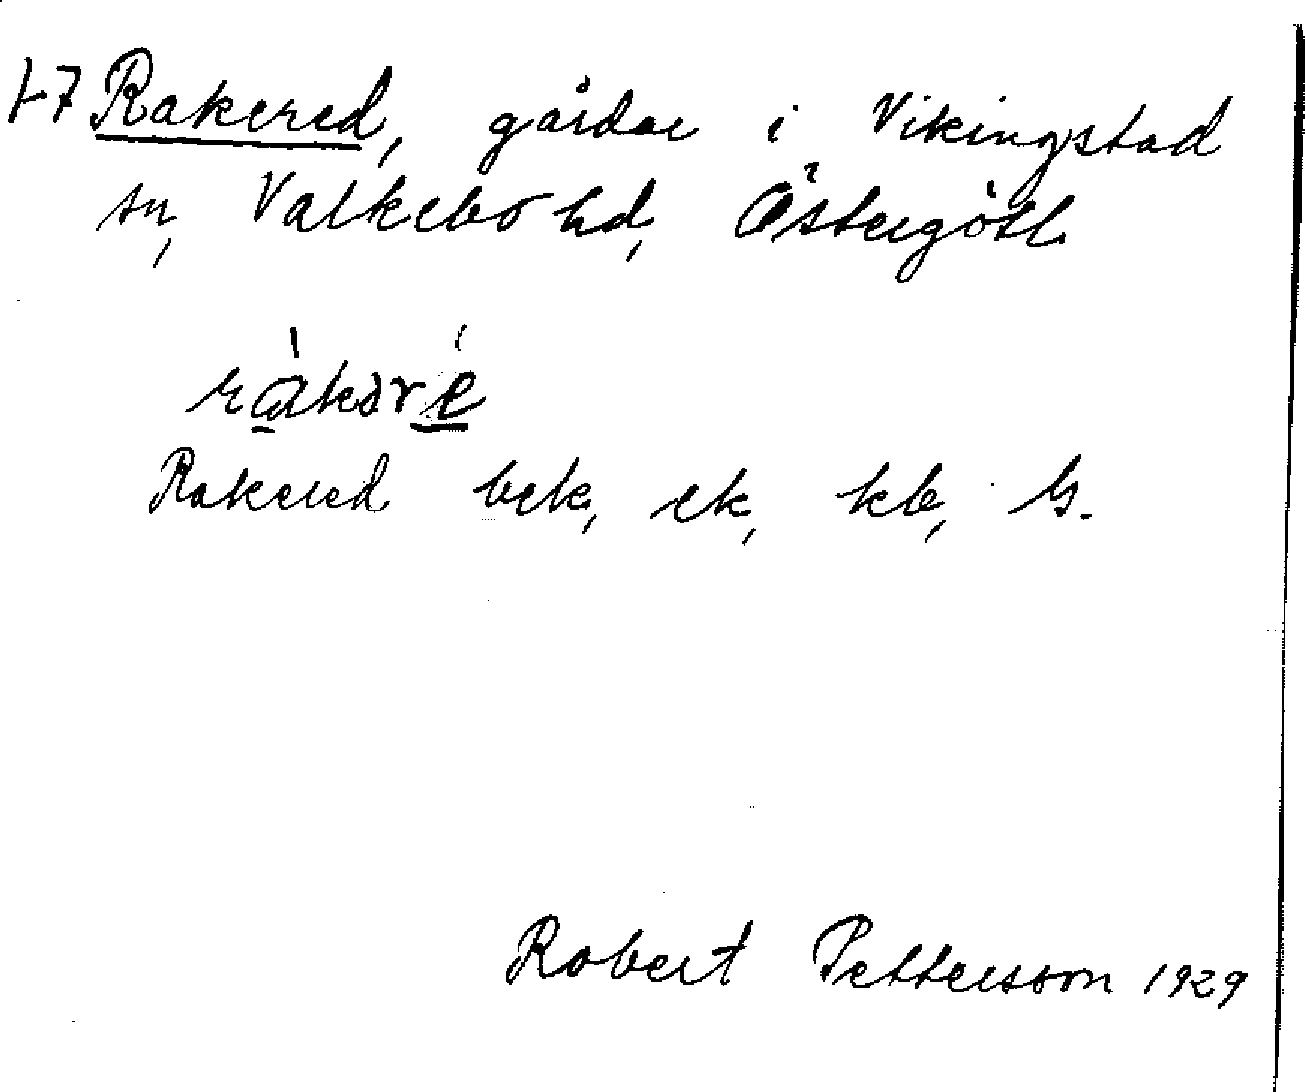 17 Rakered, gårdar i Vikingstad
sn, Valkebo hd, Östergötl.
ràkəré
Rakered bek, ek, kb, G.
Robert Pettersson 1929